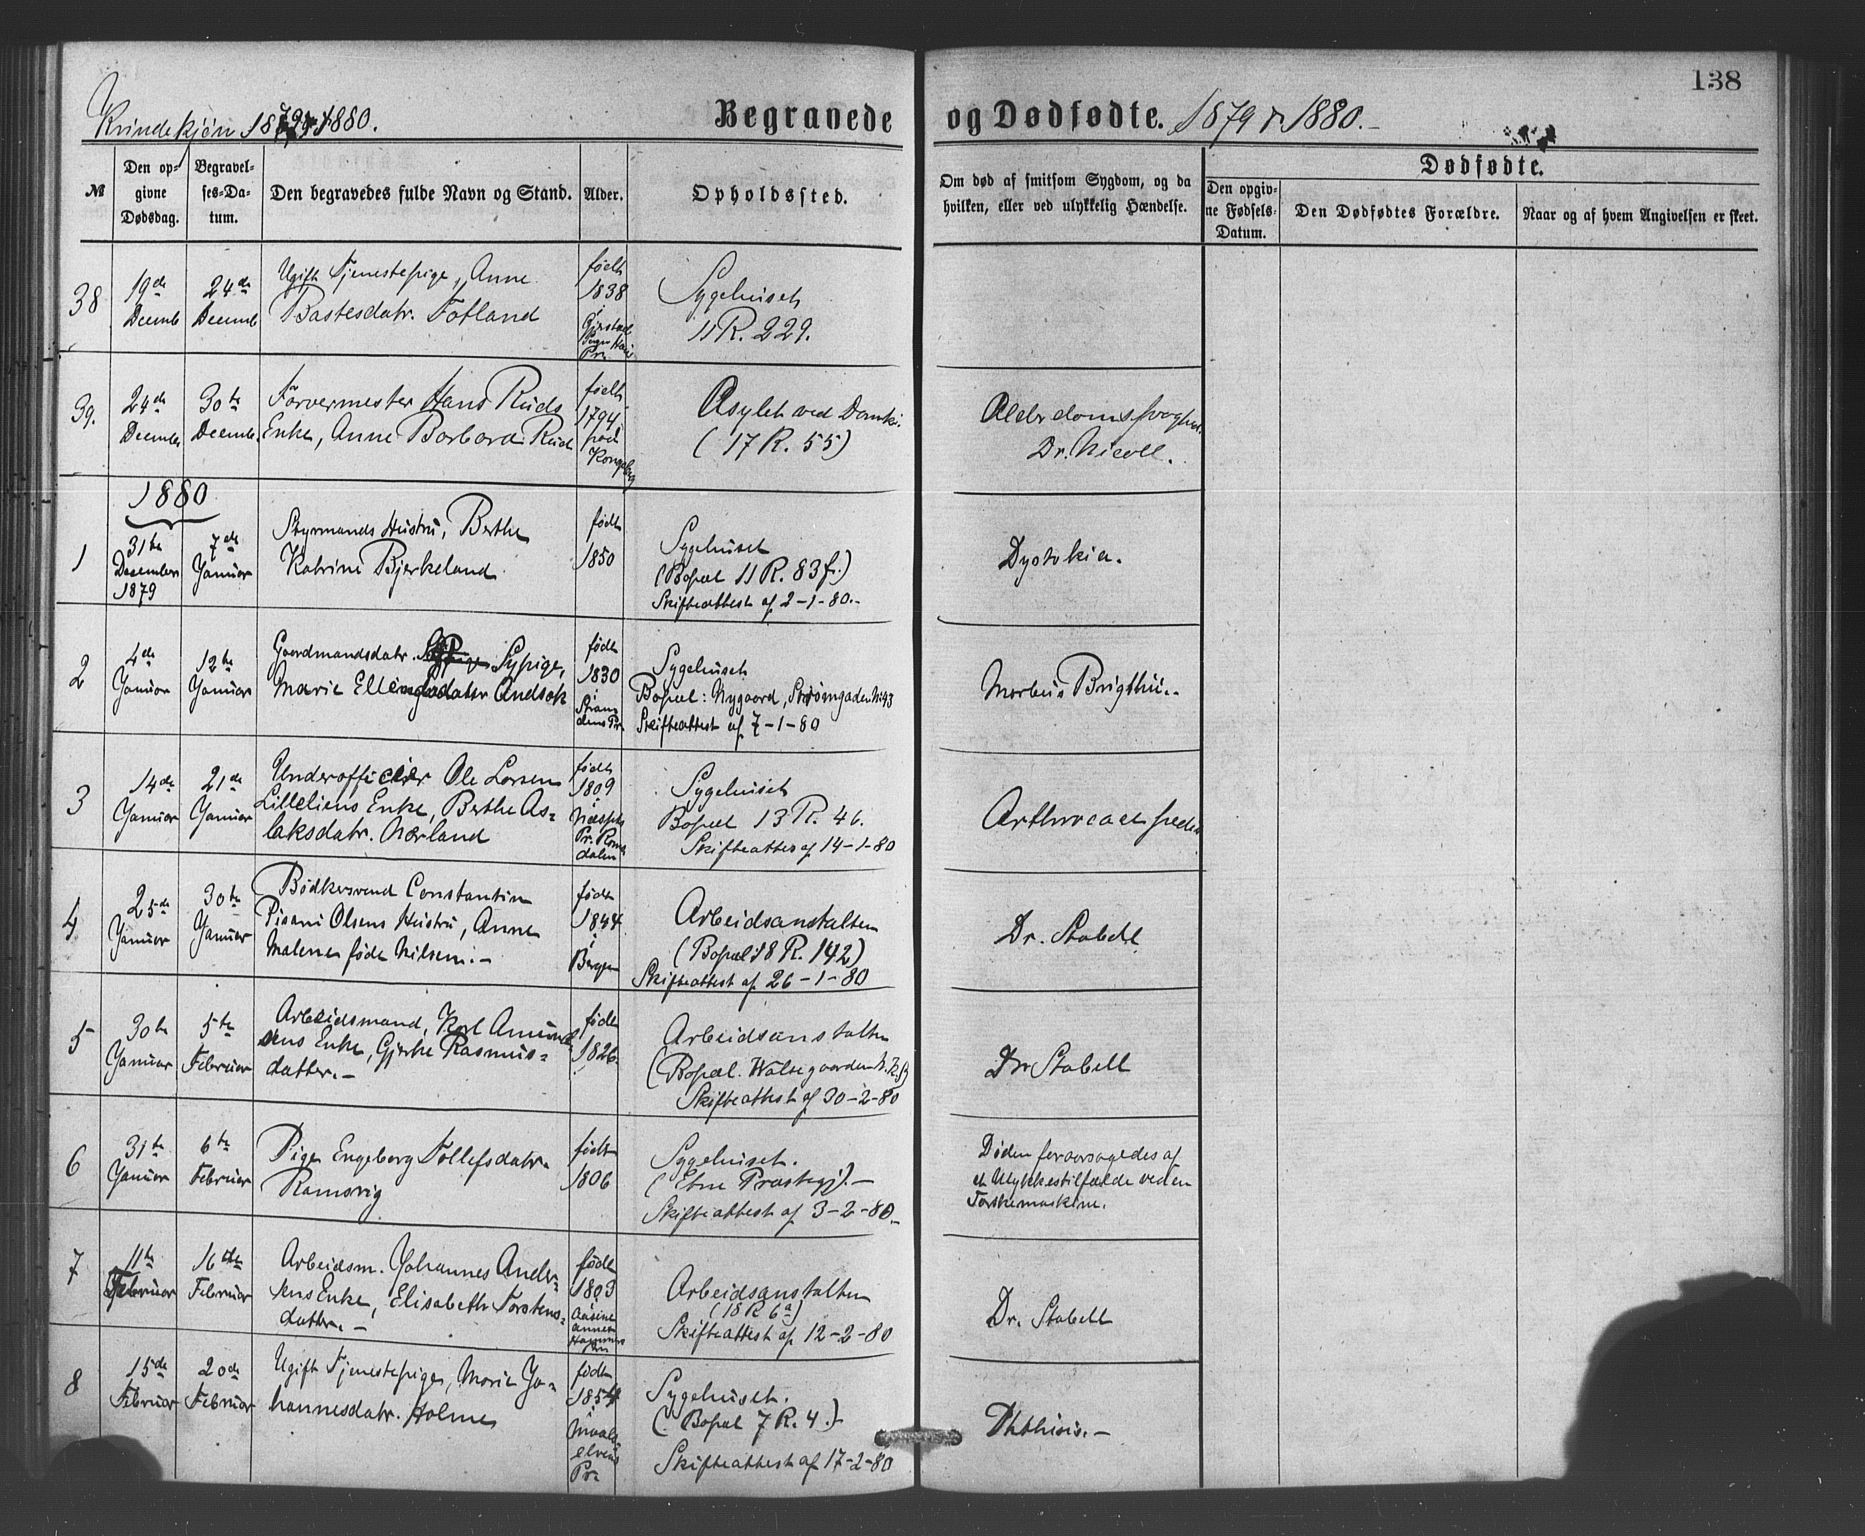 138
Kvindekjøn 1879 & 1880.
Begravede og Dødfødte. 1879 & 1880.-
№
Den op-
givne
Dødsdag.
Begravel-
ses-Da-
tum.
Den begravedes fulde Navn og Stand.
Alder.
Opholdssted.
Om død af smitsom Sygdom, og da
hvilken, eller ved ulykkelig Hændelse.
Dødfødte.
Den opgiv-
ne Fødsels-
Datum.
Den Dødfødtes Forældre.
Naar og af hvem Angivelsen er skeet.
38
19de
Decemb
24de
Decemb
Ugift Tjenestepige, Anne
Bastesdatr. Totland
født
1838
i
Pr.
Sygehuset
11 R. 229.
39.
24de
Decemb
30te
Decemb.
Farvermester Hans Ruds
Enke, Anne Barbara Rud
født
1794
paa
Kongsberg
Asylet ved Domki.
(17 R. 55)
Alderdomssvaghed.
Dr. Nicoll.
1880
1
31te
December
1879
7de
Januar
Styrmands Hustru, Berthe
Katrine Bjerkeland
født
1850
Sygehuset
(Bopæl 11 R. 83 f.)
Skifteattest af 2-1-80.-
Dystokia.
2
4de
Januar
12te
Januar
Gaardmandsdatr. Sypige,
Marie Ellingsdatter Andsok
født
1830
i
Stran-
dens Pr.
Sygehuset
Bopæl: Nygaard, Strømgaden № 43
Skifteattest af 7-1-80
Morbus Brigthii.-
3
14de
Januar
21de
Januar
Underofficier Ole Larsen
Lilleliens Enke, Berthe As-
laksdatr. Nærland
født
1809
i
Pr. Roms-
dalen
Sygehuset
Bopæl 13 R. 46.
Skifteattes af 14-1-80
4
25de
Januar
30te
Januar
Bødkersvend Constantin
Pisani Olsens Hustru, Anne
Malene føde Nilsen.-
født
1844
i
Bergen
Arbeidsanstalten
(Bopæl 18 R. 142)
Skifteattest af 26-1-80
Dr. Stabell
5
30te
Januar
5te
Februar
Arbeidsmand, Karl Amund-
sens Enke, Gjerthe Rasmus-
datter.-
født
1826.
Arbeidsanstalten
Skifteattest af 30-2-80
Dr Stabell
6
31te
Januar
6te
Februar
Pige Engeborg Tollefsdatr.
Ramsvig
født
1806
Sygehuset.
(Etne Præstegj).-
Skifteattest af 3-2-80.-
Døden foraarsagedes af
et Ulykkestilfælde ved en
Tærskemaskine.
7
11te
Februar
16de
Februar
Arbeidsm. Johannes Ander-
sens Enke, Elisabeth Torstens-
datter.-
født
1803
Arbeidsanstalten
(18 R 6a)
Skifteattest af 12-2-80
Dr. Stabell
8
15de
Februar
20de
Februar
Ugift Tjenestepige, Marie Jo-
hannesdatr. Holme
født
1854
i
Maals-
elvens
Pr
Sygehuset.
(Bopæl 7 R. 4.)-
Skifteattest af 17-2-80
Phthisis.-